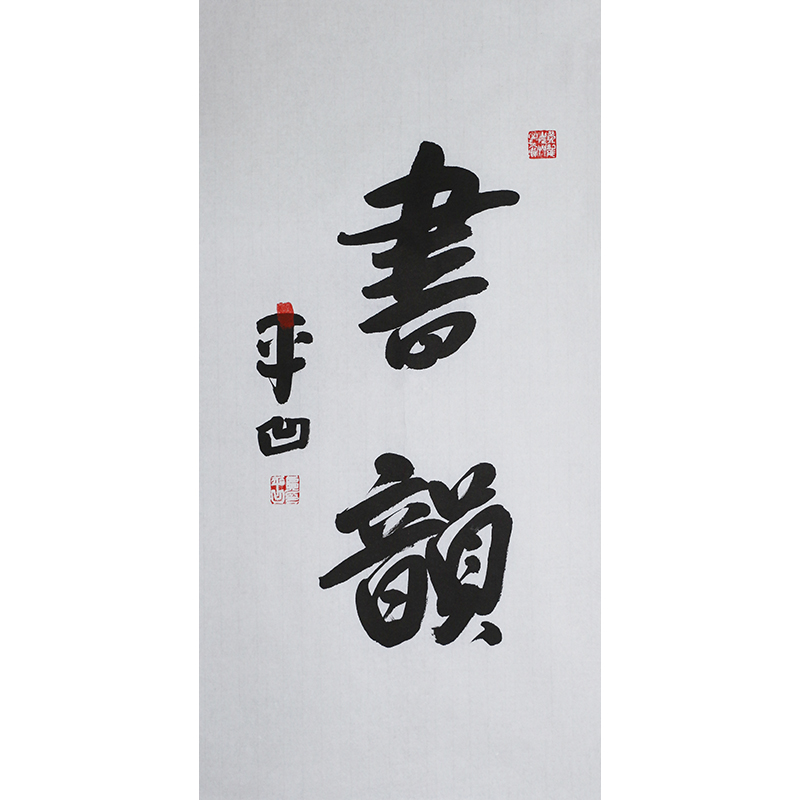 書韻
平凹